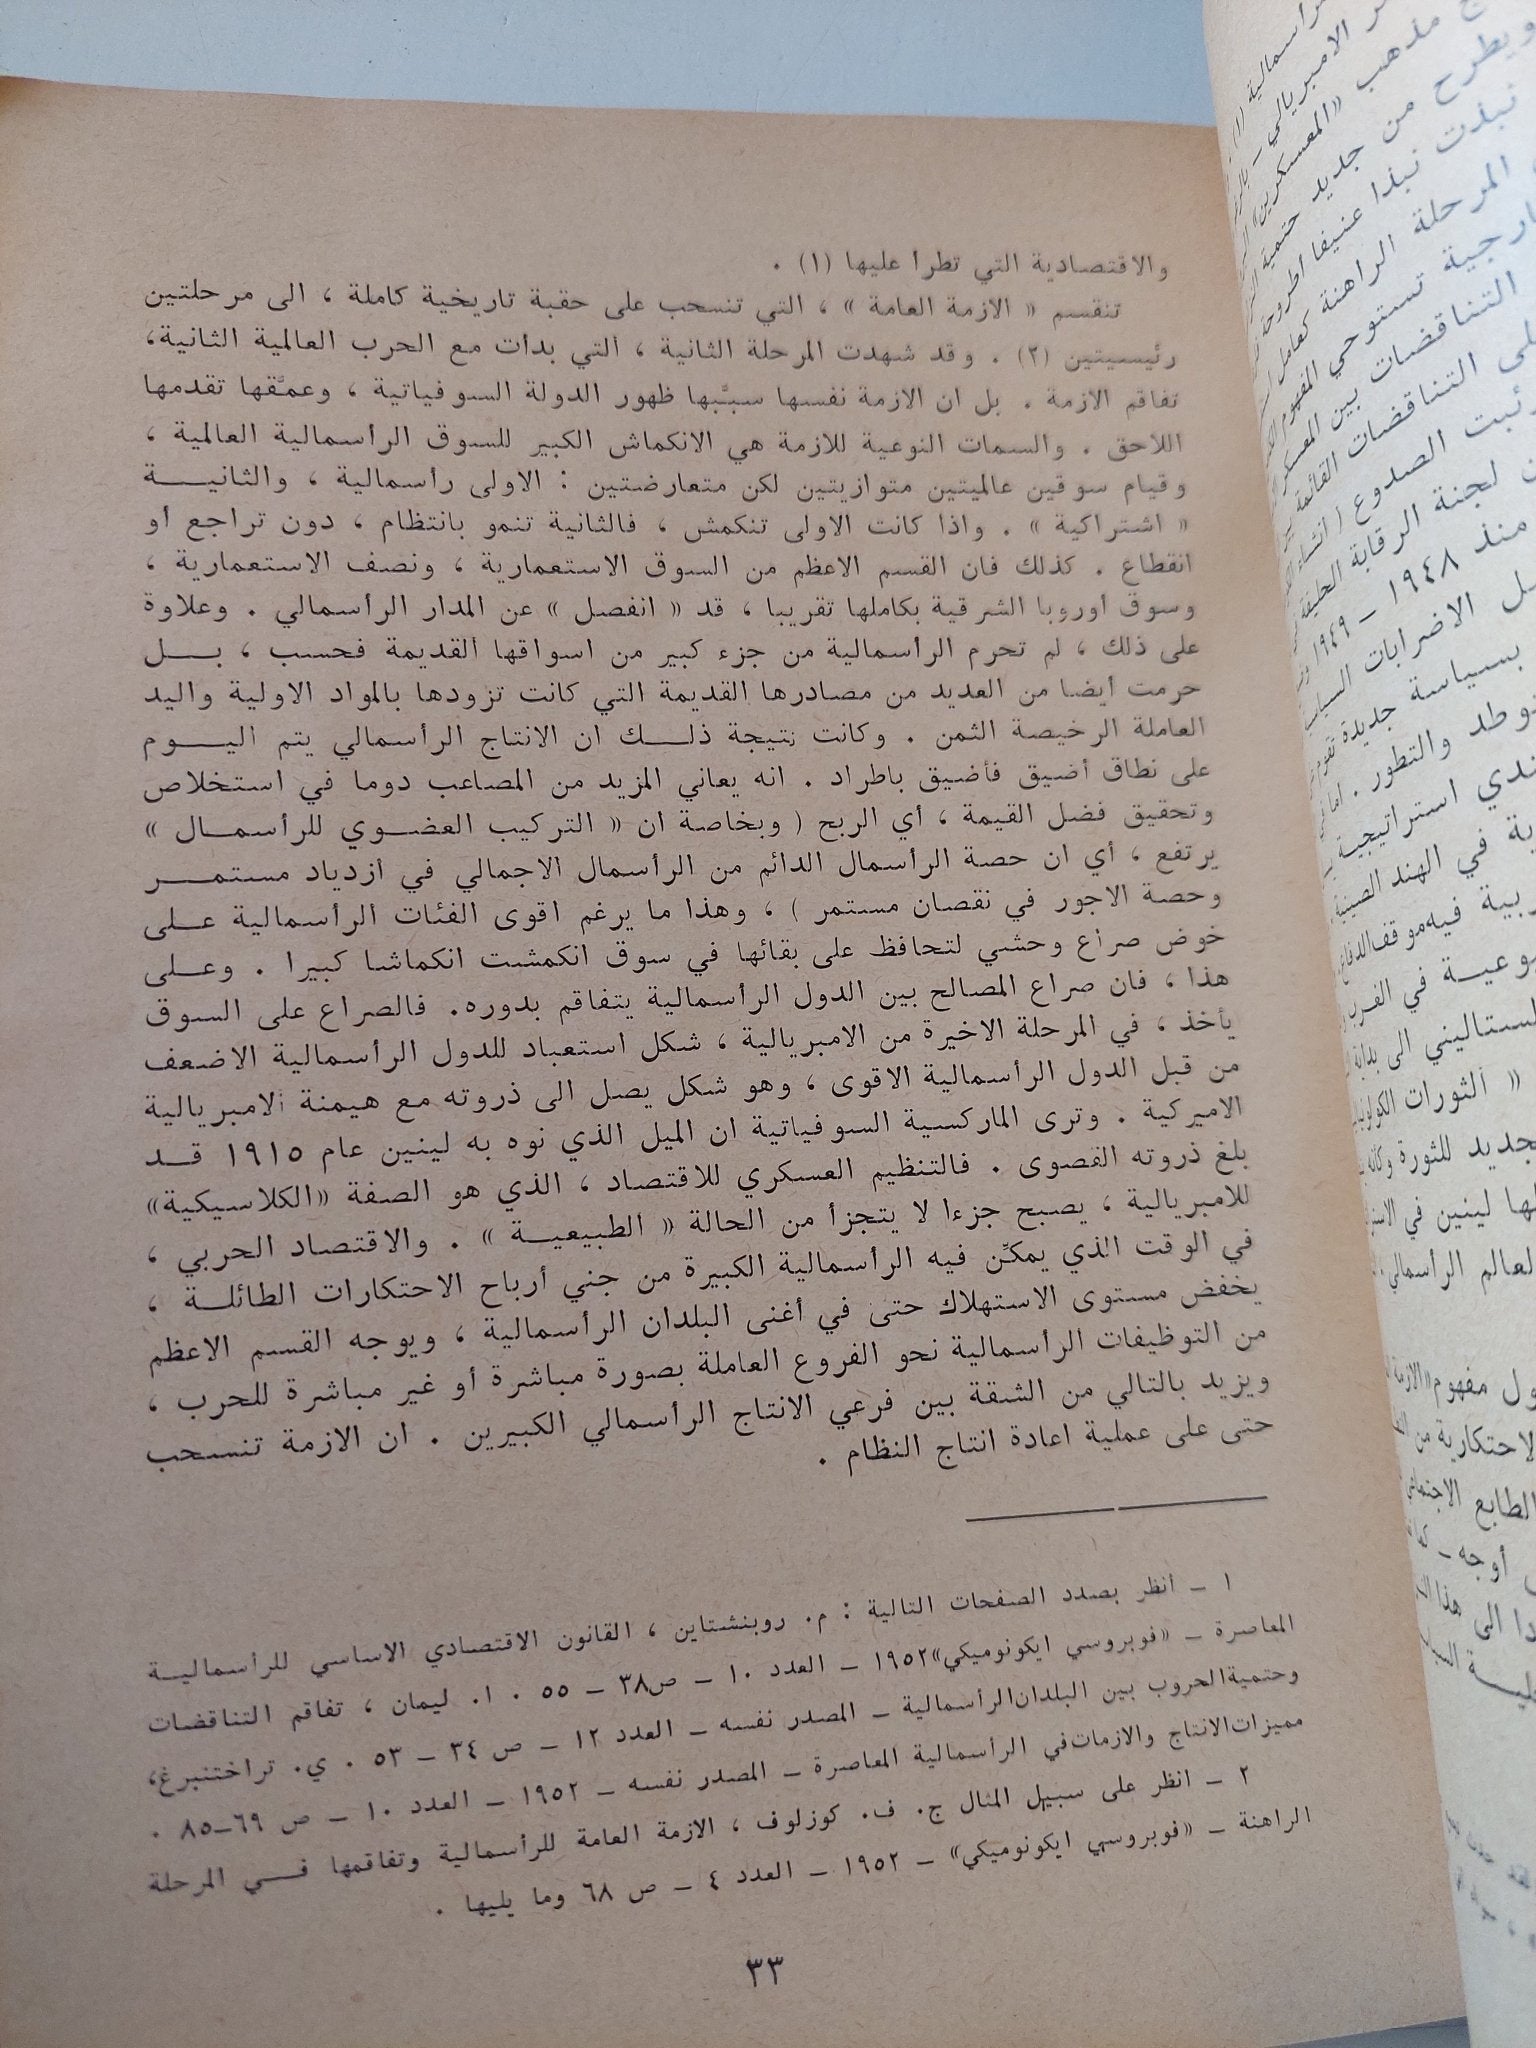 والاقتصادية التي تطرأ عليها (١) .
تنقسم « الازمة العامة » ، التي تنسحب على حقبة تاريخية كاملة ، الى مرحلتين
رئيسيتين (٢) . وقد شهدت المرحلة الثانية ، التي بدأت مع الحرب العالمية الثانية،
تفاقم الازمة . بل ان الازمة نفسها سببَّبها ظهور الدولة السوفياتية ، وعمَّقها تقدمها
اللاحق . والسمات النوعية للازمة هي الانكماش الكبير للسوق الرأسمالية العالمية ،
وقيام سوقين عالميتين متوازيتين لكن متعارضتين : الاولى رأسمالية ، والثانيــة
« اشتراكية » . واذا كانت الاولى تنكمش ، فالثانية تنمو بانتظام ، دون تراجع أو
انقطاع . كذلك فان القسم الاعظم من السوق الاستعمارية ، ونصف الاستعمارية ،
وسوق أوروبا الشرقية بكاملها تقريبا ، قد « انفصل » عن المدار الرأسمالي . وعلاوة
على ذلك ، لم تحرم الرأسمالية من جزء كبير من اسواقها القديمة فحسب ، بــل
حرمت أيضا من العديد من مصادرها القديمة التي كانت تزودها بالمواد الاولية واليد
العاملة الرخيصة الثمن . وكانت نتيجة ذلــك ان الانتاج الرأسمالي يتم اليــوم
على نطاق أضيق فأضيق باطراد . انه يعاني المزيد من المصاعب دوما في استخلاص
وتحقيق فضل القيمة ، أي الربح ( وبخاصة ان « التركيب العضــوي للرأسمــال »
يرتفع ، أي ان حصة الرأسمال الدائم من الرأسمال الاجمالي في ازدياد مستمــر
وحصة الاجور في نقصان مستمر ) ، وهذا ما يرغم اقوى الفئات الرأسمالية علــى
خوض صراع وحشي لتحافظ على بقائها في سوق انكمشت انكماشا كبيرا . وعلــى
هذا ، فان صراع المصالح بين الدول الرأسمالية يتفاقم بدوره. فالصراع على السوق
يأخذ ، في المرحلة الاخيرة من الامبريالية ، شكل استعباد للدول الرأسمالية الاضعف
من قبل الدول الرأسمالية الاقوى ، وهو شكل يصل الى ذروته مع هيمنة الامبريالية
الاميركية . وترى الماركسية السوفياتية ان الميل الذي نوه به لينين عام ١٩١٥ قــد
بلغ ذروته القصوى . فالتنظيم العسكري للاقتصاد ، الذي هو الصفة «الكلاسيكية»
للامبريالية ، يصبح جزءا لا يتجزأ من الحالة « الطبيعيــة » . والاقتصاد الحربي ،
في الوقت الذي يمكِّن فيه الرأسمالية الكبيرة من جني أرباح الاحتكارات الطائلــة ،
يخفض مستوى الاستهلاك حتى في أغنى البلدان الرأسمالية ، ويوجه القسم الاعظم
من التوظيفات الرأسمالية نحو الفروع العاملة بصورة مباشرة أو غير مباشرة للحرب ،
ويزيد بالتالي من الشقة بين فرعي الانتاج الرأسمالي الكبيرين . ان الازمة تنسحب
حتى على عملية اعادة انتاج النظام .
١ – انظر بصدد الصفحات التالية : م. روبنشتاين ، القانون الاقتصادي الاساسي للرأسماليــة
المعاصرة – «فوبروسي ايكونوميكي»١٩٥٢ – العدد ١٠ – ص٣٨ – ٥٥ . ا. ليمان ، تفاقم التناقضات
وحتميةالحروب بين البلدانالرأسمالية – المصدر نفسه – العدد ١٢ – ص ٣٤ – ٥٣ . ي. تراختنبرغ،
مميزاتالانتاج والازماتفي الرأسمالية المعاصرة – المصدر نفسه – ١٩٥٢ – العدد ١٠ – ص ٦٩–٨٥ .
٢ – انظر على سبيل المثال ج. ف. كوزلوف ، الازمة العامة للرأسمالية وتفاقمها فــي المرحلة
الراهنة – «فوبروسي ايكونوميكي» – ١٩٥٢ – العدد ٤ – ص ٦٨ وما يليها .
٣٣
ويطرح من جديد حتمية
نبذت نبذا عنيفا اطروحة
المرحلة الراهنة كعامل
تستوحي المفهوم
التناقضات بين
التناقضات القائمة
الصدوع ( انشاء
لجنة الرقابة الحليفة
منذ ١٩٤٨ – ١٩٤٩
الاضرابات
بسياسة جديدة تقوم
والتطور . اما
استراتيجية
في الهند الصينية
فيهموقفالدفاع
في الغرب
الستاليني الى بداية
« الثورات الكولونيالية
للثورة وكأنه
لينين في
العالم الرأسمالي .
مفهوم «الازمة
الاحتكارية من
الطابع
أوجه –
الى هذا